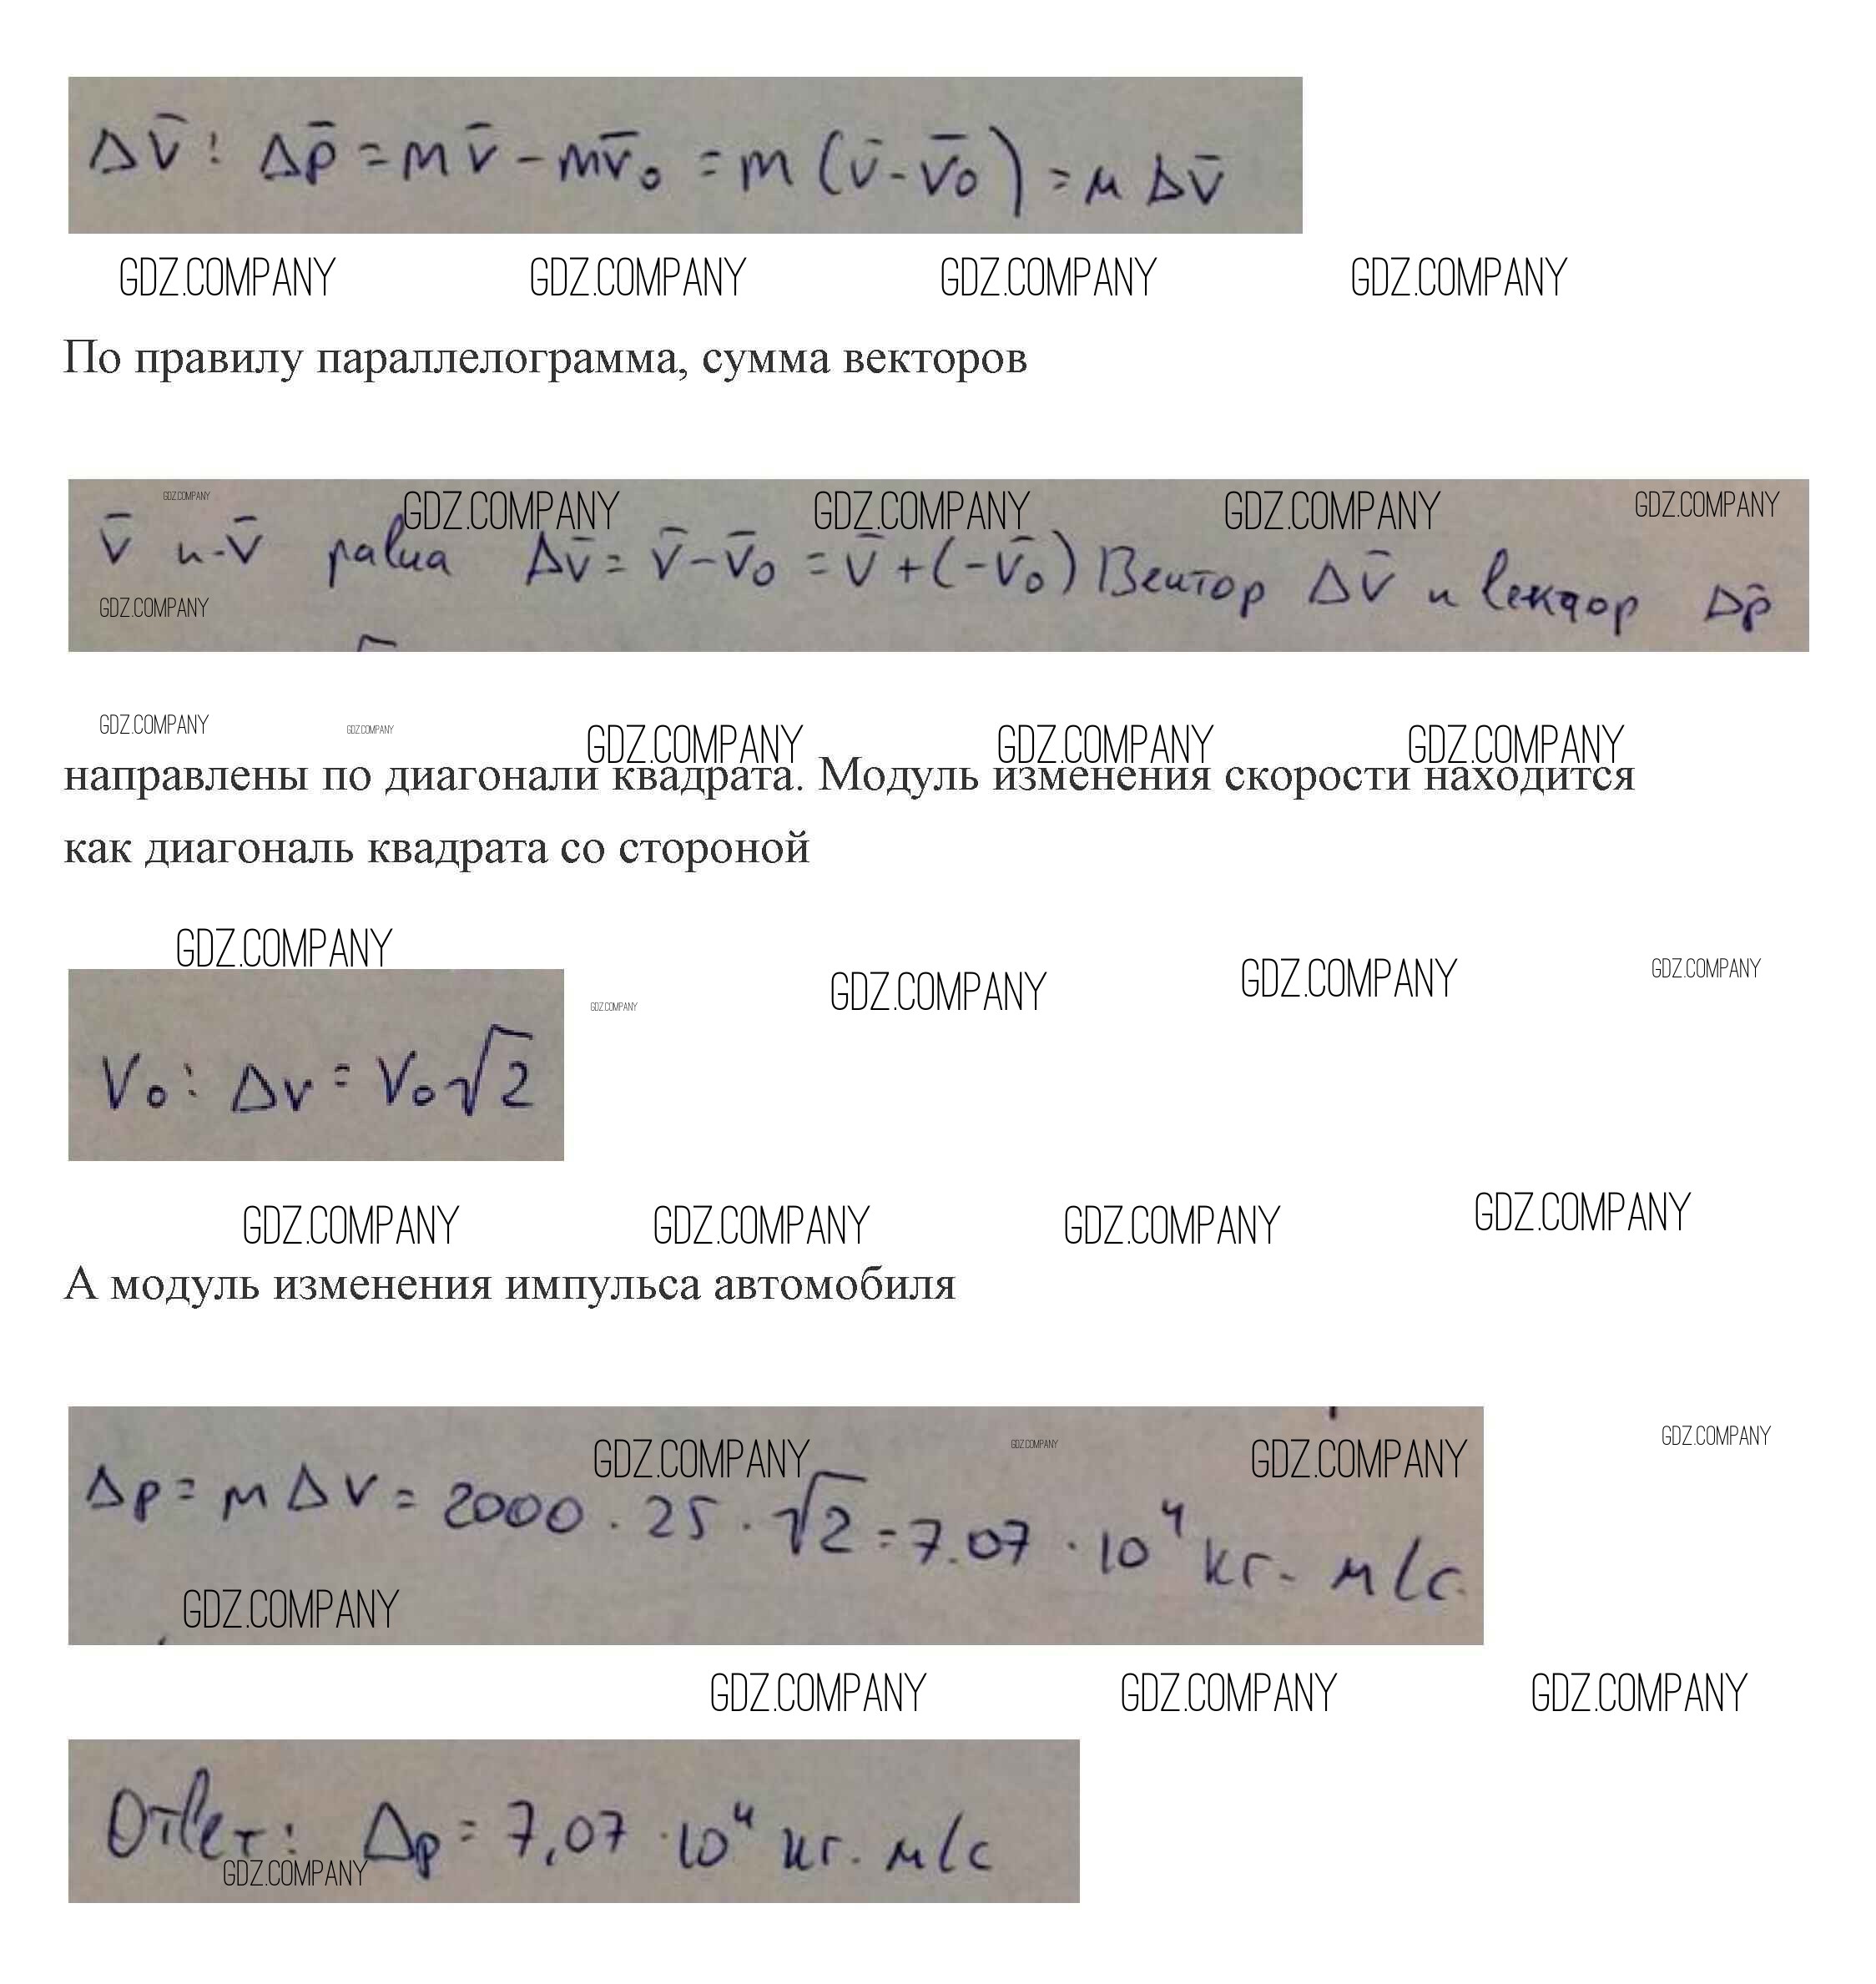 Δv̄: Δp̄ = mv̄ - mv̄₀ = m(v̄ - v̄₀) = м Δv̄
GDZ.COMPANY GDZ.COMPANY GDZ.COMPANY GDZ.COMPANY
По правилу параллелограмма, сумма векторов
GDZ.COMPANY GDZ.COMPANY GDZ.COMPANY GDZ.COMPANY GDZ.COMPANY
v̄ и -v̄ равна Δv̄ = v̄ - v̄₀ = v̄ + (-v̄₀) Вектор Δv̄ и вектор Δp̄
GDZ.COMPANY
GDZ.COMPANY GDZ.COMPANY GDZ.COMPANY GDZ.COMPANY GDZ.COMPANY
направлены по диагонали квадрата. Модуль изменения скорости находится
как диагональ квадрата со стороной
GDZ.COMPANY GDZ.COMPANY GDZ.COMPANY GDZ.COMPANY GDZ.COMPANY
V₀: Δv = V₀√2
GDZ.COMPANY GDZ.COMPANY GDZ.COMPANY GDZ.COMPANY
А модуль изменения импульса автомобиля
GDZ.COMPANY GDZ.COMPANY GDZ.COMPANY GDZ.COMPANY
Δp = м Δv = 2000 · 25 · √2 = 7.07 · 10⁴ кг. м/с.
GDZ.COMPANY
GDZ.COMPANY GDZ.COMPANY GDZ.COMPANY
Ответ: Δp = 7,07 · 10⁴ кг. м/с
GDZ.COMPANY